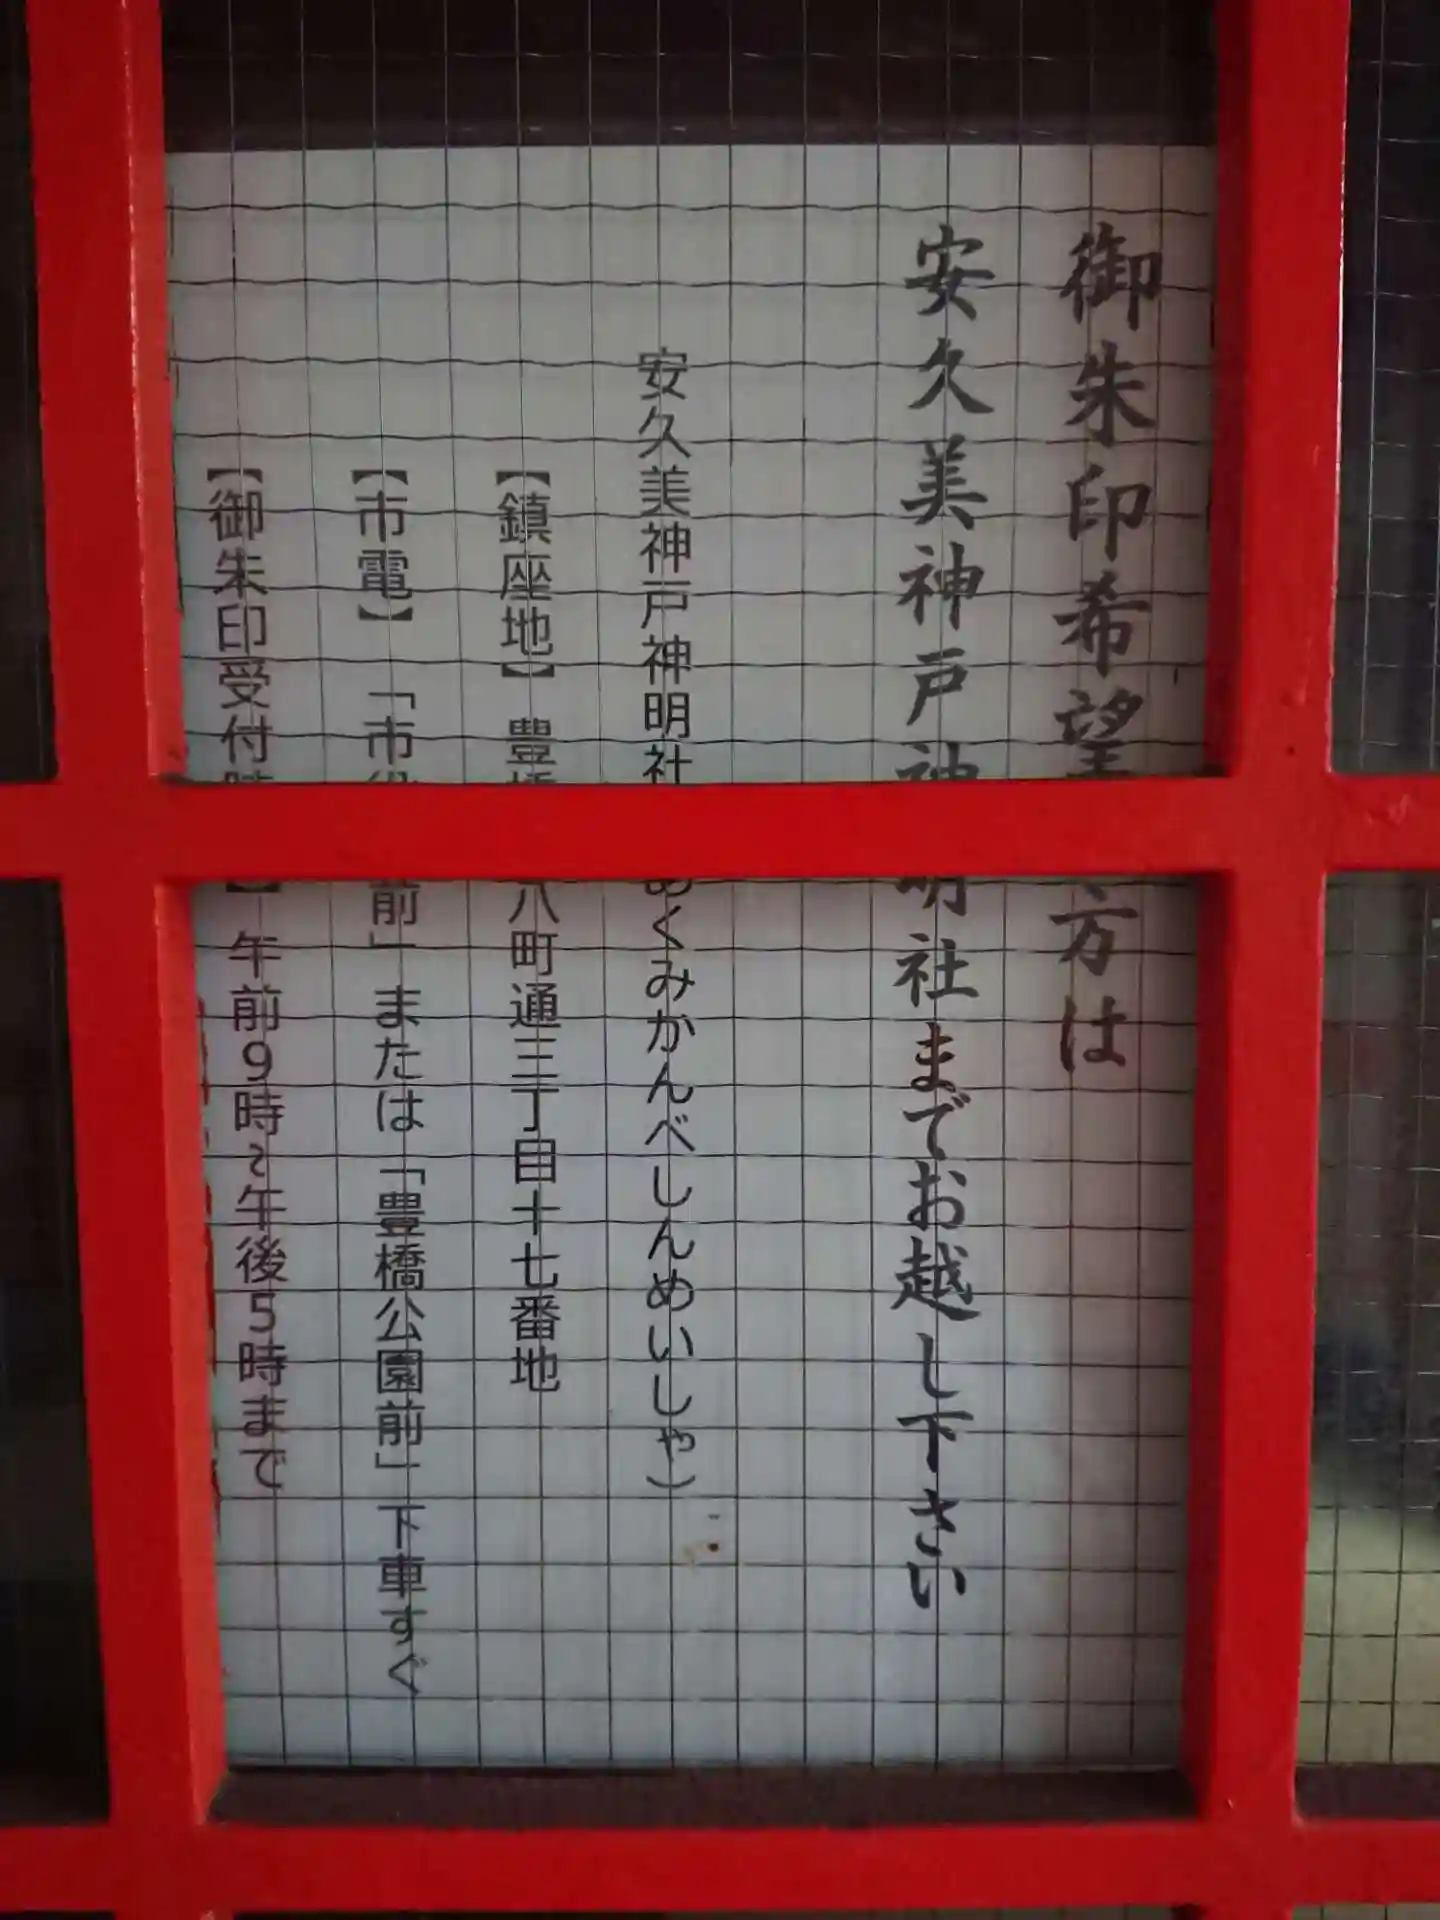 御朱印希望 方は
安久美神戸神明社までお越し下さい
安久美神戸神明社 あくみかんべしんめいしゃ）
【鎮座地】 豊橋 八町通三丁目十七番地
【市電】 「市役 前」または「豊橋公園前」下車すぐ
【御朱印受付時 】 午前9時～午後5時まで